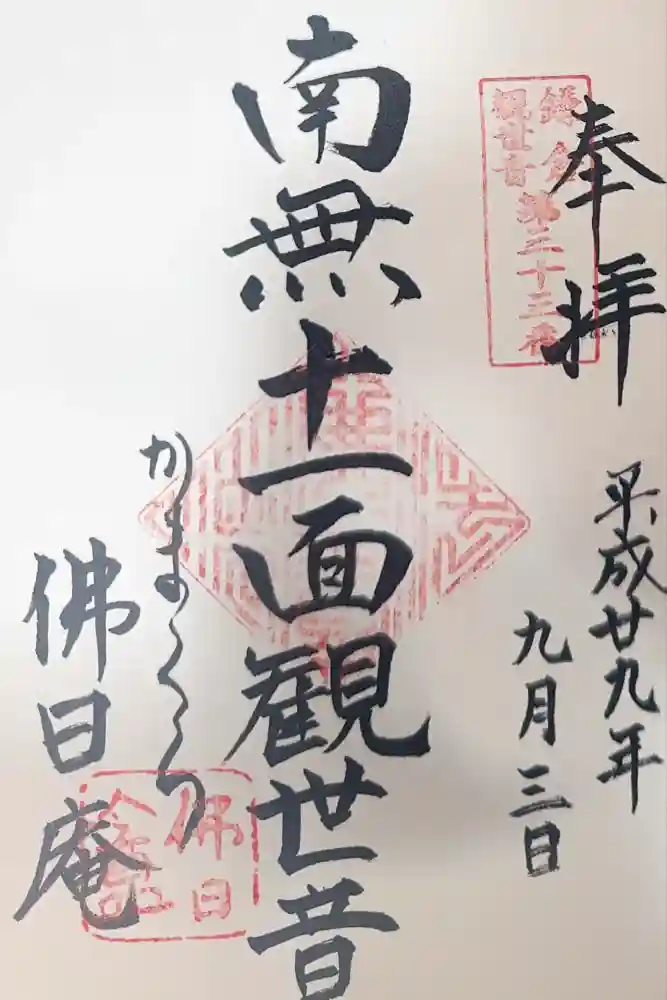 奉拝
平成廿九年
九月三日
鎌倉
観世音
第三十三番
南無十一面観世音
かまくら
佛日庵
佛日